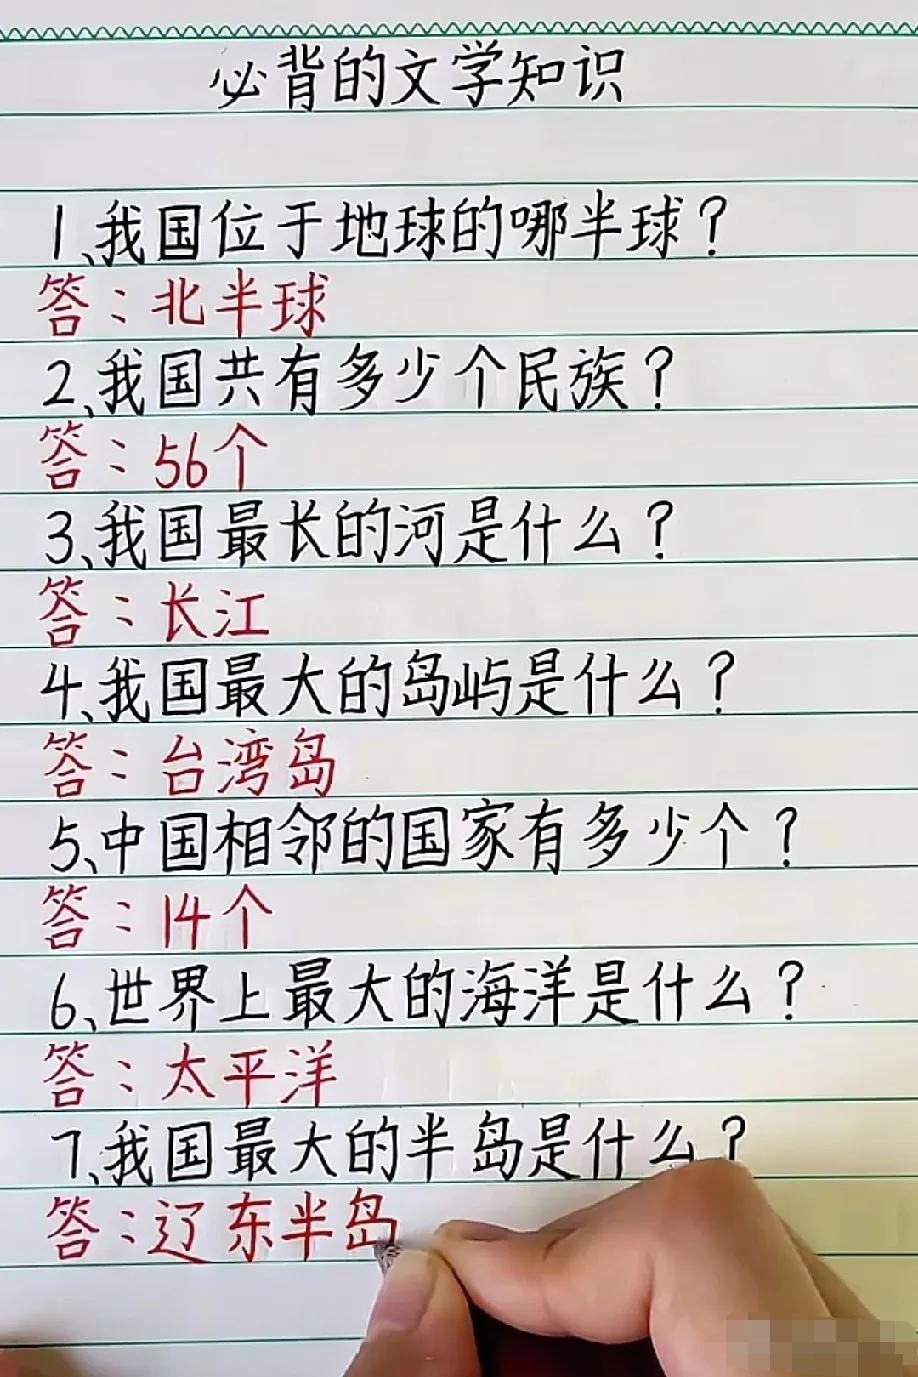 必背的文学知识
1、我国位于地球的哪半球？
答：北半球
2、我国共有多少个民族？
答：56个
3、我国最长的河是什么？
答：长江
4、我国最大的岛屿是什么？
答：台湾岛
5、中国相邻的国家有多少个？
答：14个
6、世界上最大的海洋是什么？
答：太平洋
7、我国最大的半岛是什么？
答：辽东半岛